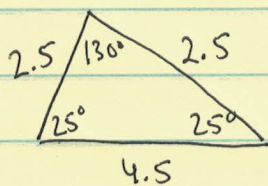 2.5 130° 2.5
25° 25°
4.5